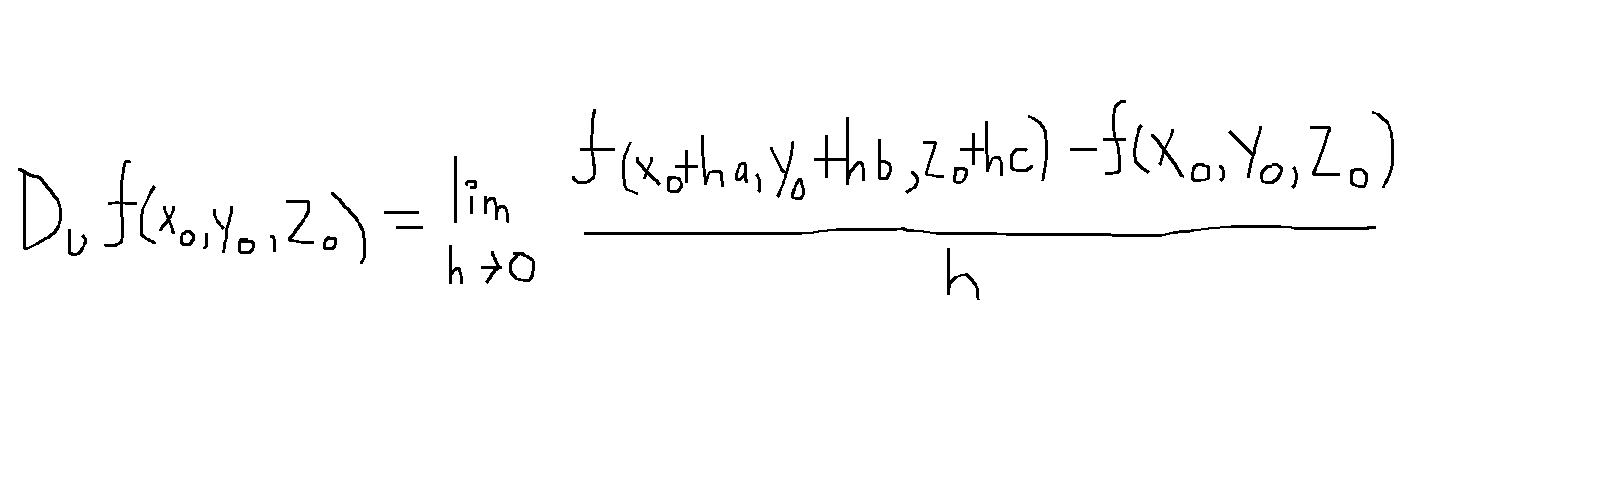 D_u f(x_0, y_0, z_0) = lim_{h→0} \frac{f(x_0+ha, y_0+hb, z_0+hc) - f(x_0, y_0, z_0)}{h}